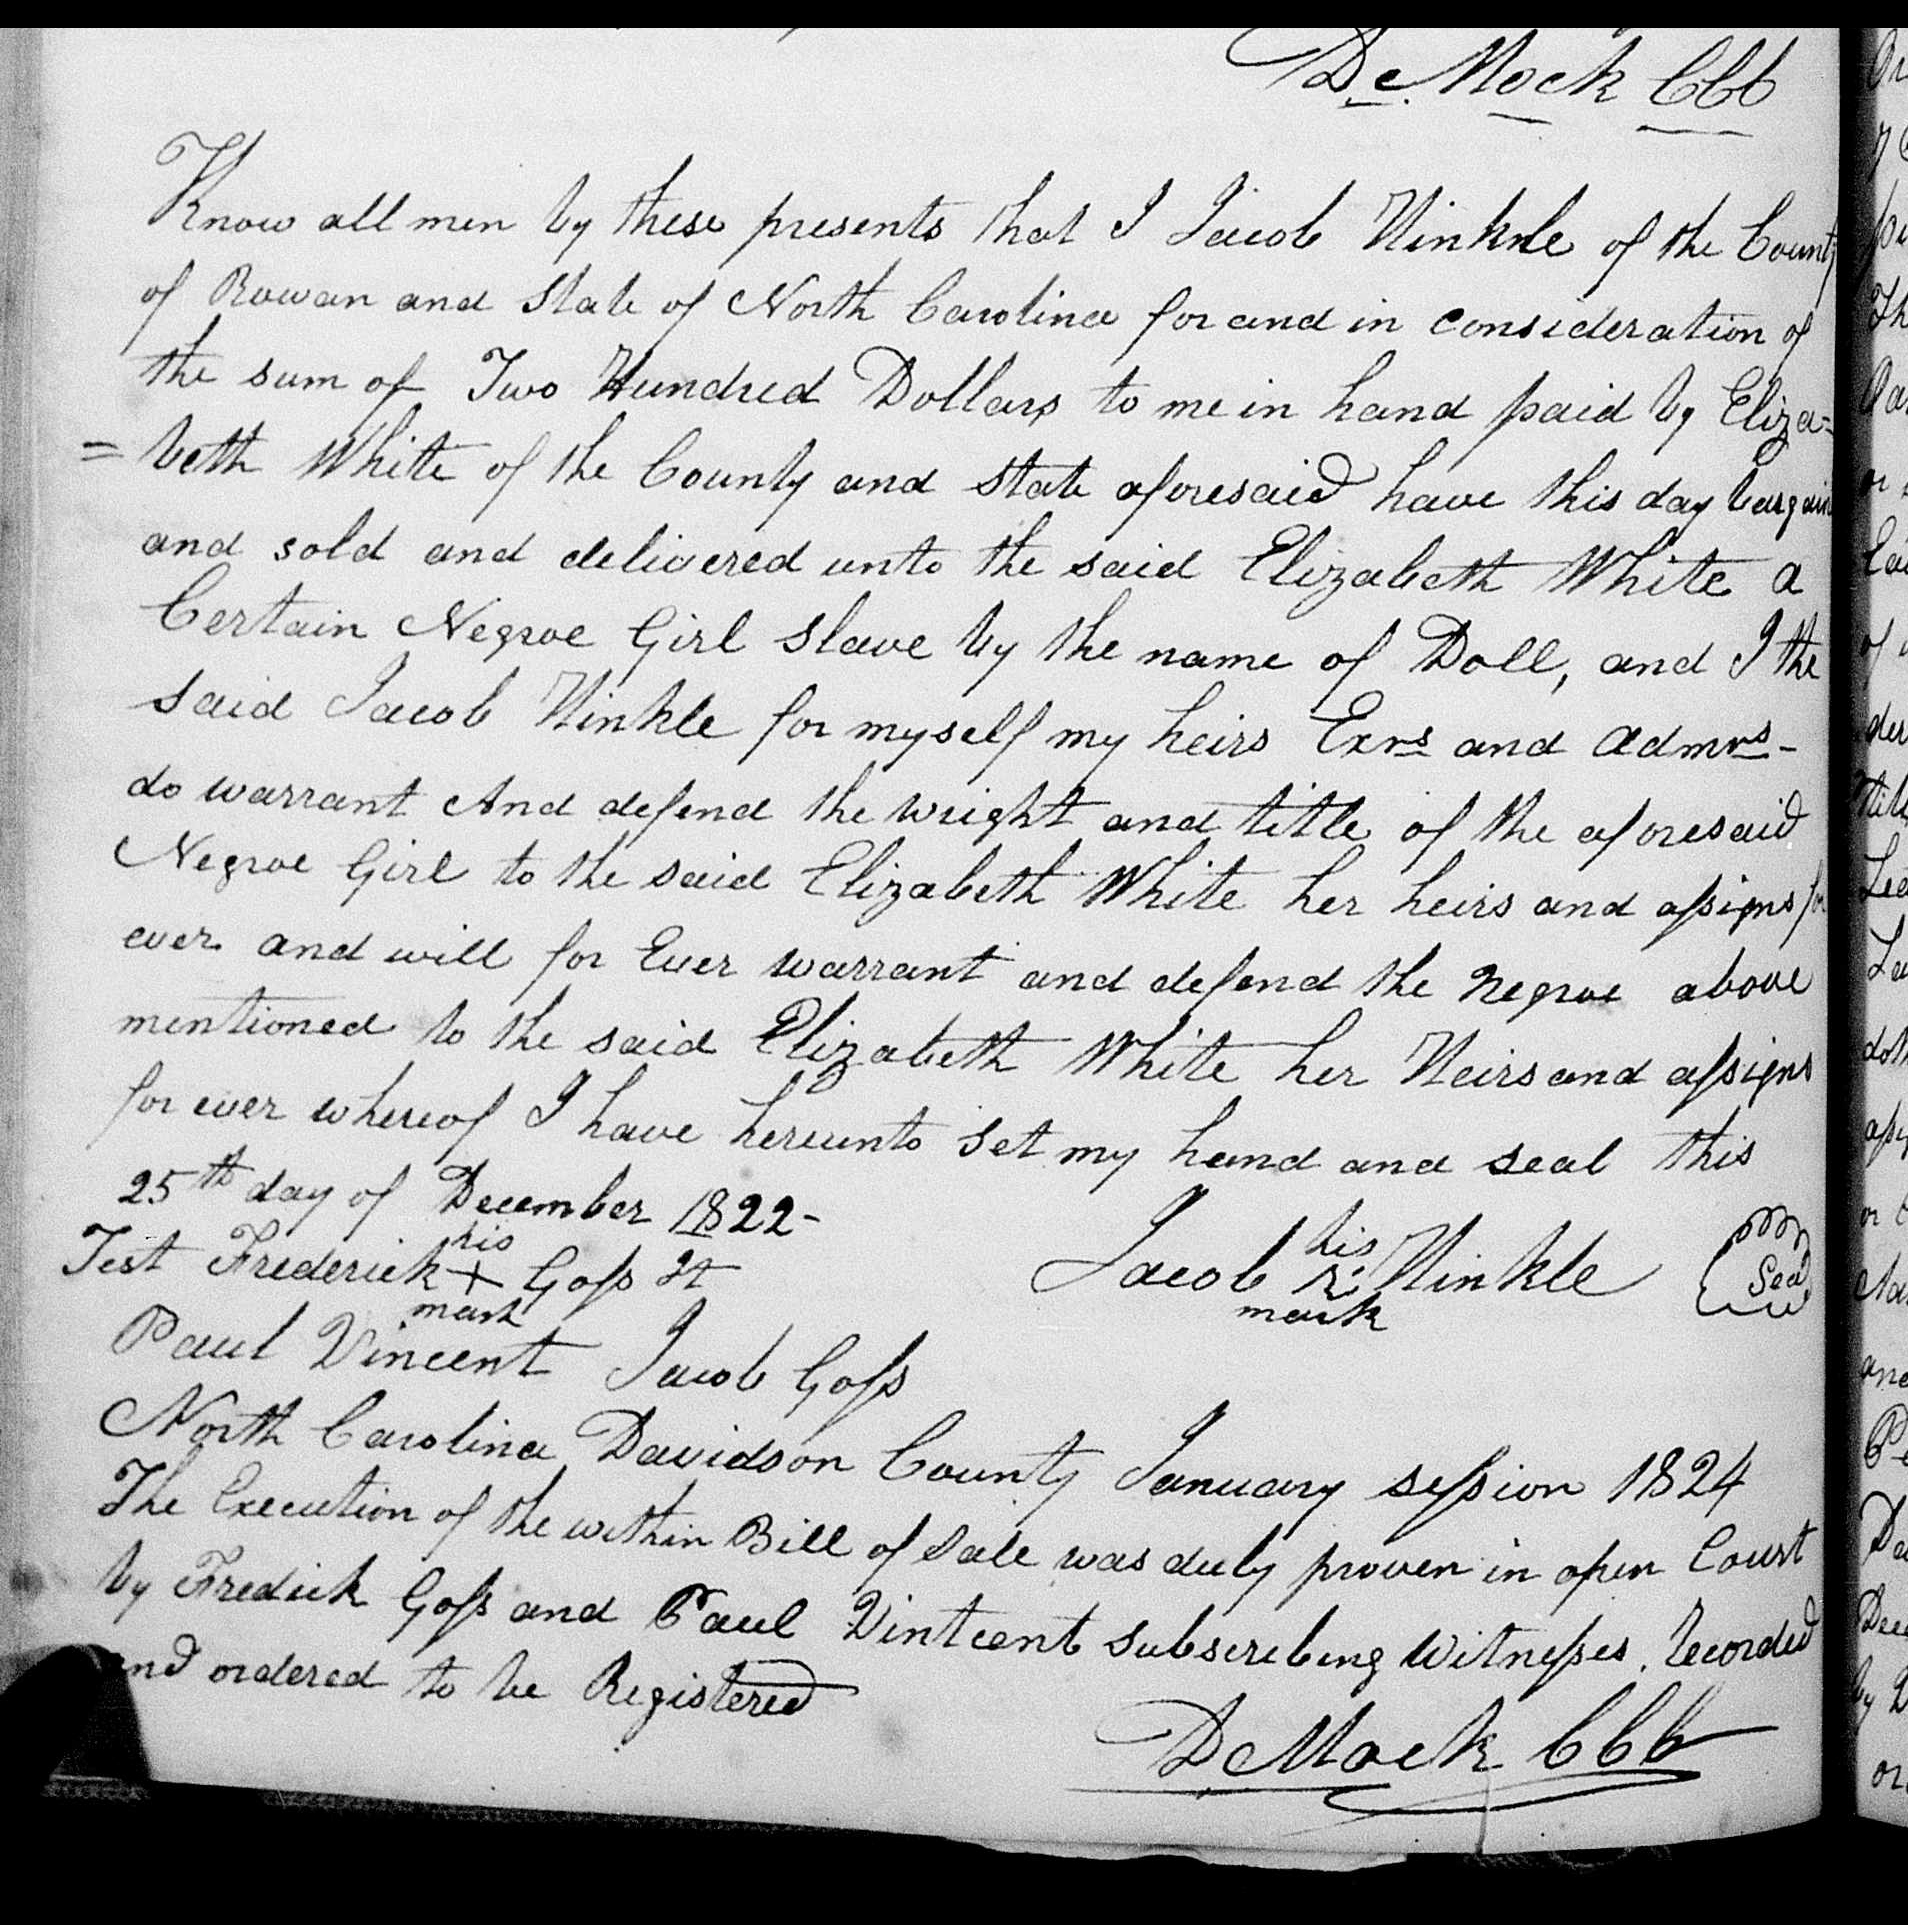 D. Mock CCC
Know all men by these presents that I Jacob Hinkle of the County
of Rowan and State of North Carolina for and in consideration of
the sum of Two Hundred Dollars to me in hand paid by Eliza=
=beth White of the County and State aforesaid have this day bargain
and sold and delivered unto the said Elizabeth White a
Certain Negroe Girl Slave by the name of Doll, and I the
said Jacob Hinkle for myself my heirs Exrs and Admrs-
do warrant And defend the wright and title of the aforesaid
Negroe Girl to the said Elizabeth White her heirs and assigns for
ever and will for Ever warrant and defend the Negroe above
mentioned to the said Elizabeth White her Heirs and assigns
for ever whereof I have hereunto set my hand and seal this
25th day of December 1822-
his his
Test Frederick + Goss Jacob Hinkle Seal
mark mark
Paul Vincent Jacob Goss
North Carolina Davidson County January session 1824
The Execution of the within Bill of Sale was duly proven in open Court
by Fredick Goss and Paul Vintcent subscribing Witnesses. Recorded
and ordered to be Registered
D Mock CCC